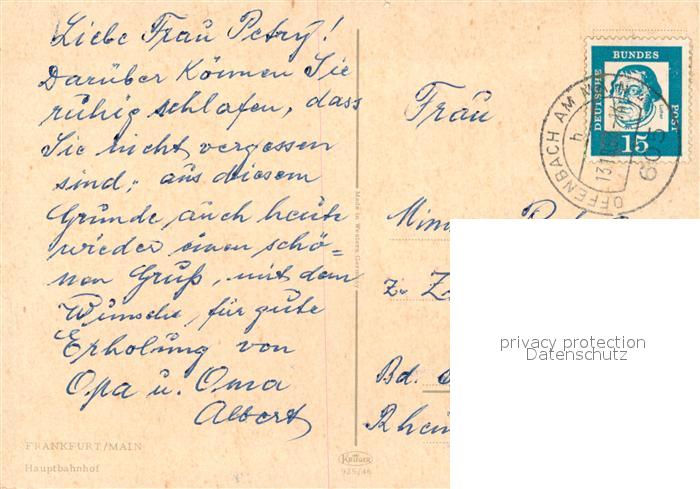 Liebe Frau Petry!
Darüber können Sie
ruhig schlafen, dass
Sie nicht vergessen
sind, aus diesem
Grunde auch heute
wieder einen schö=
nen Gruß, mit dem
Wunsche, für gute
Erholung von
Opa u. Oma
Albert
FRANKFURT/MAIN
Hauptbahnhof
Made in Western Germany
KRÜGER
925/46
DEUTSCHE
BUNDES
POST
15
OFFENBACH AM MAIN
h
605
Frau
Z
Bd.
Rhein
privacy protection
Datenschutz